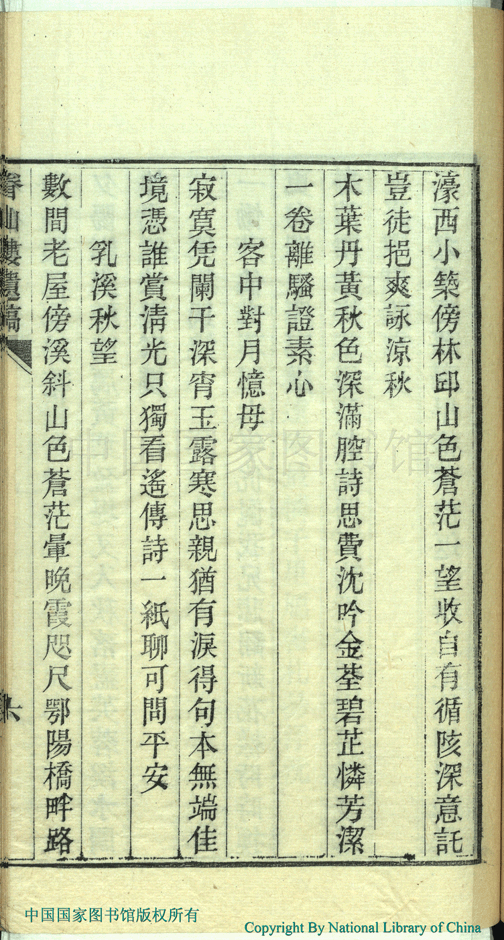 濠西小築傍林邱山色蒼茫一望收自有循陔深意託
豈徒挹爽詠涼秋
木葉丹黃秋色深滿腔詩思費沈吟金荃碧芷憐芳潔
一卷離騷證素心
客中對月憶母
寂寞凭闌干深宵玉露寒思親猶有淚得句本無端佳
境憑誰賞淸光只獨看遙傳詩一紙聊可問平安
乳溪秋望
數間老屋傍溪斜山色蒼茫暈晚霞咫尺鄂陽橋畔路
六
中国国家图书馆版权所有
Copyright By National Library of China